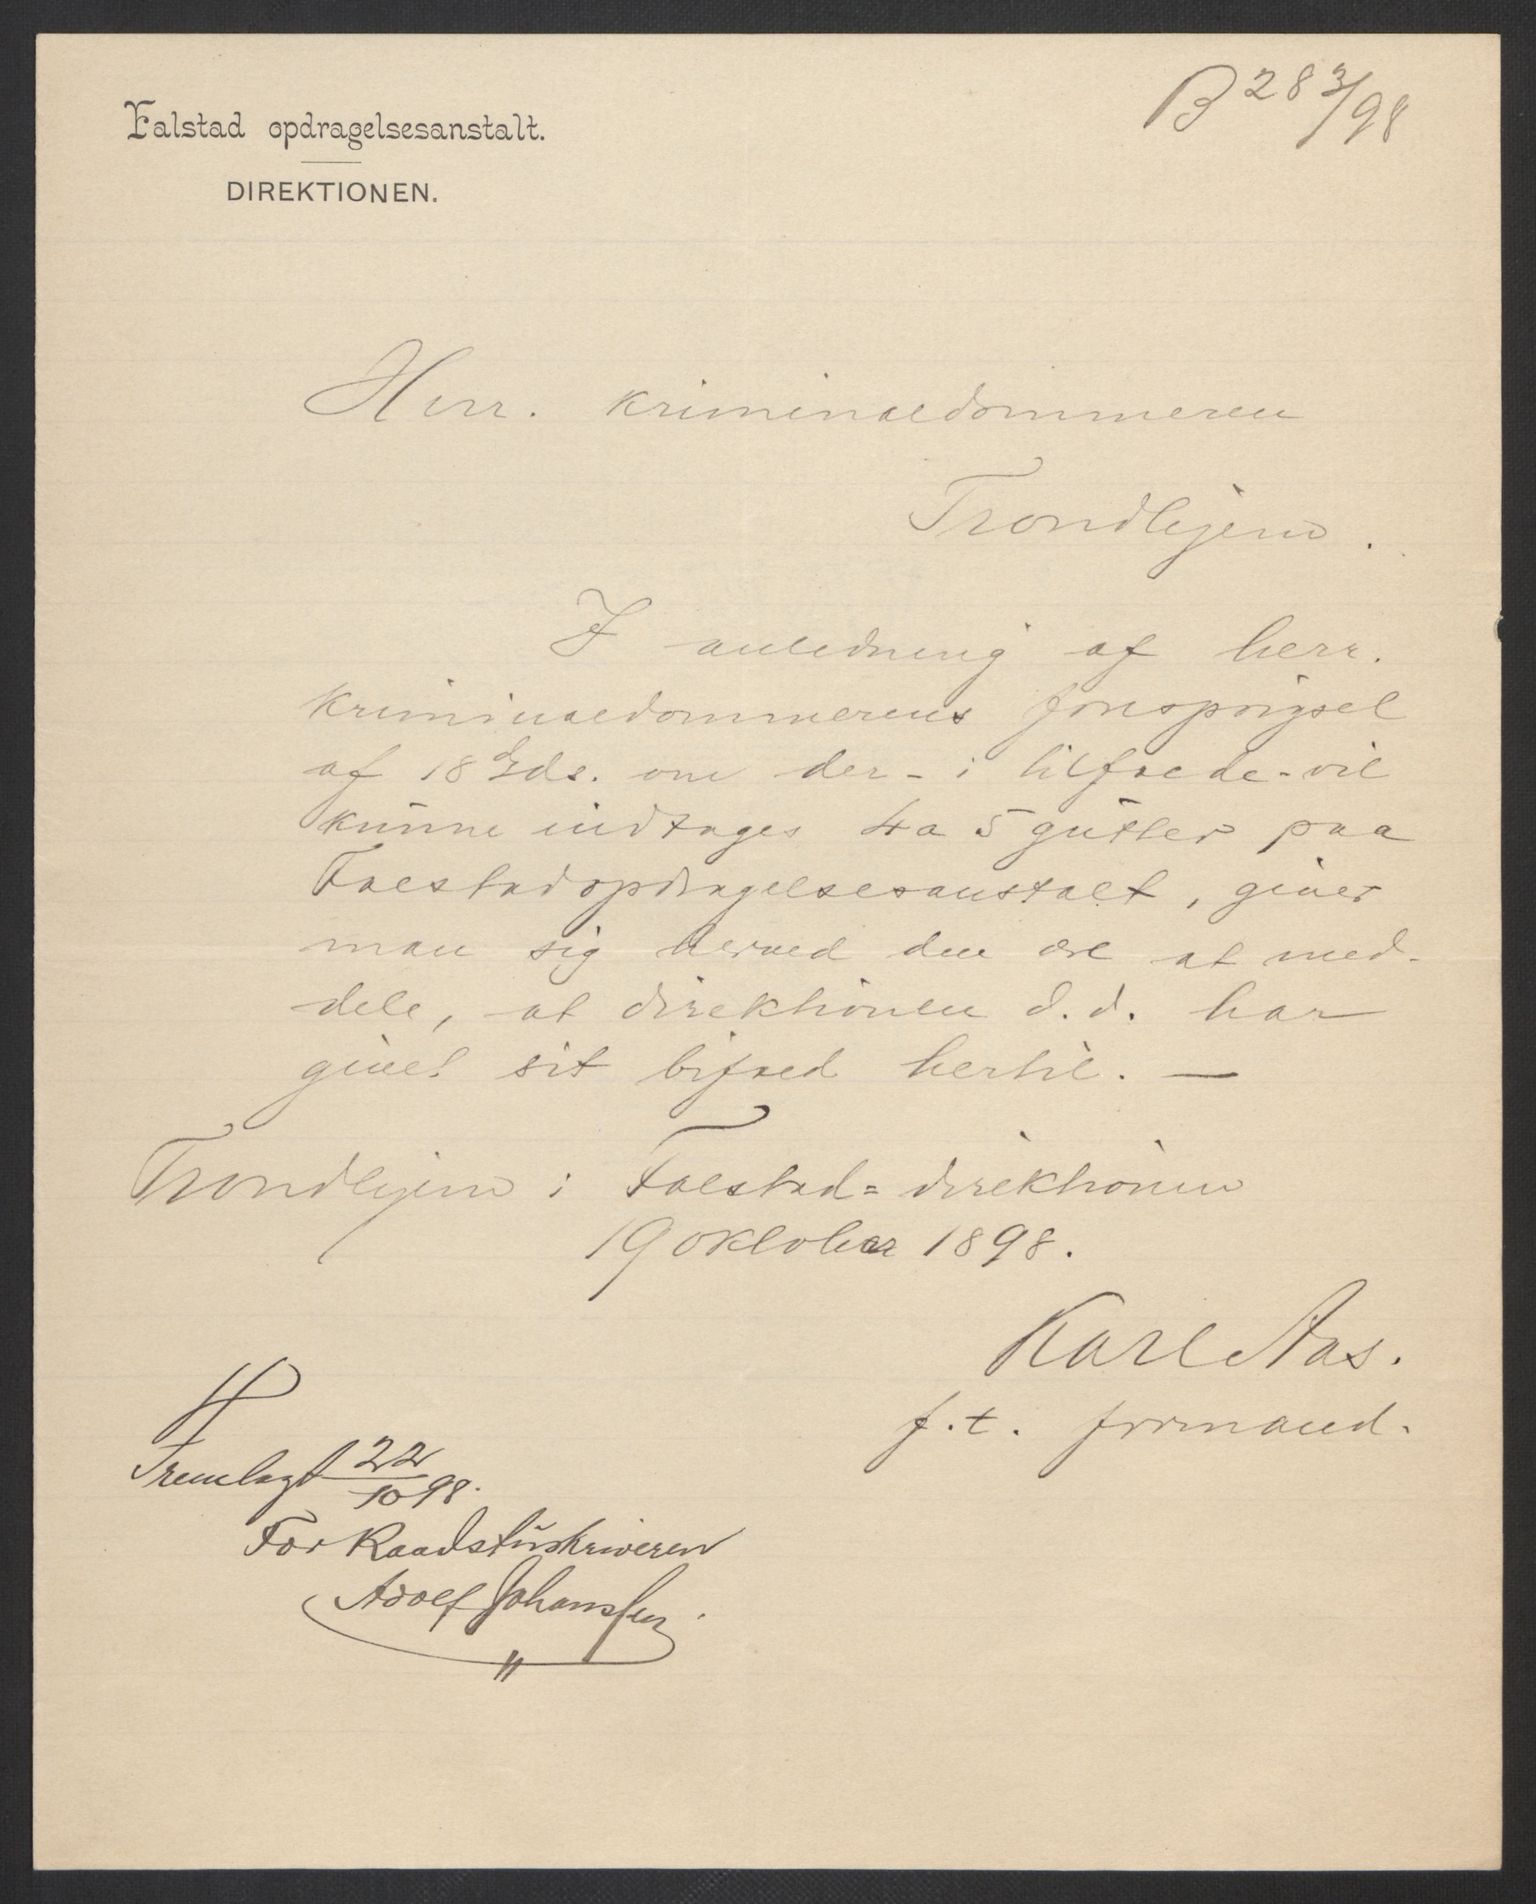 Falstad opdragelsesanstalt.
DIREKTIONEN.
B 283/98
Herr. kriminaldommeren
Trondhjem.
I anledning af herr.
kriminaldommerens forespørgsel
af 18 ds. om der - i tilfælde - vil
kunne indtages 4 a 5 gutter paa
Falstad opdragelsesanstalt, giver
man sig herved den ære at med-
dele, at direktionen d.d. har
givet sit bifald hertil. —
Trondhjem i Falstad=direktionen
19 oktober 1898.
Karl Aas.
f.t. formand.
H
Fremlagt 22/10 98.
For Raadstuskriveren
Adolf Johanssen.